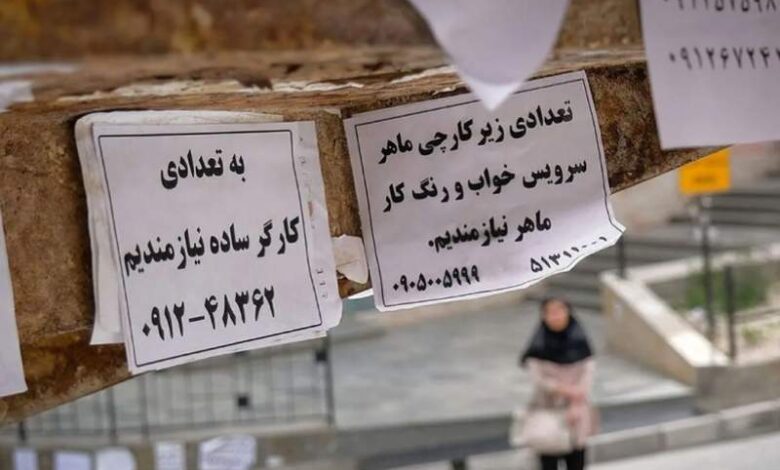 به تعدادی
کارگر ساده نیازمندیم
۰۹۱۲-۴۸۳۶۲
تعدادی زیر کارچی ماهر
سرویس خواب و رنگ کار
ماهر نیازمندیم.
۵۱۳۱۱۰-۱
۰۹۰۵۰۰۵۹۹۹
۰۹۱۲۶۷۲۴۲